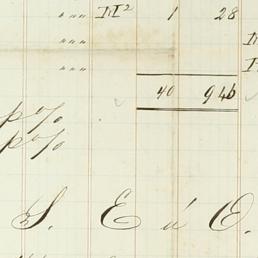 " " " M² 1 28
" " "
" " "
40 946
p%
p%
S. E ú O.